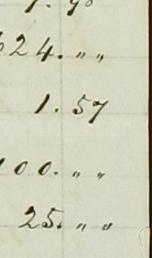 24. „ „
1.57
00. „ „
25. „ „